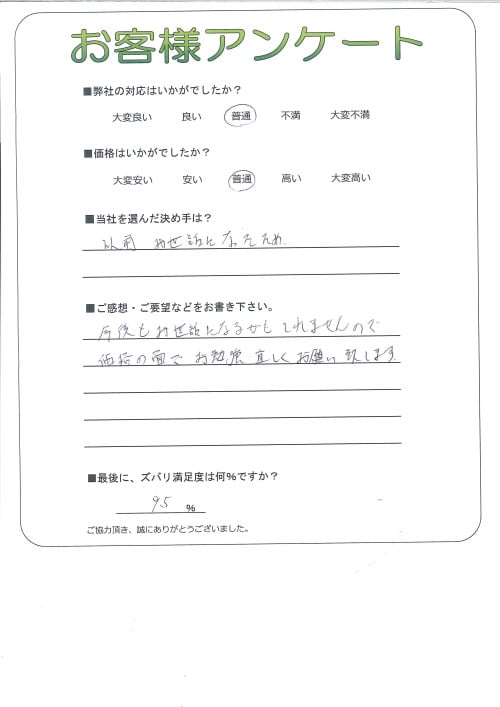 お客様アンケート
■弊社の対応はいかがでしたか？
大変良い 良い 普通 不満 大変不満
■価格はいかがでしたか？
大変安い 安い 普通 高い 大変高い
■当社を選んだ決め手は？
以前 お世話になったため.
■ご感想・ご要望などをお書き下さい。
今後もお世話になるかもしれませんので
価格の面でお勉強宜しくお願い致します
■最後に、ズバリ満足度は何%ですか？
95 %
ご協力頂き、誠にありがとうございました。